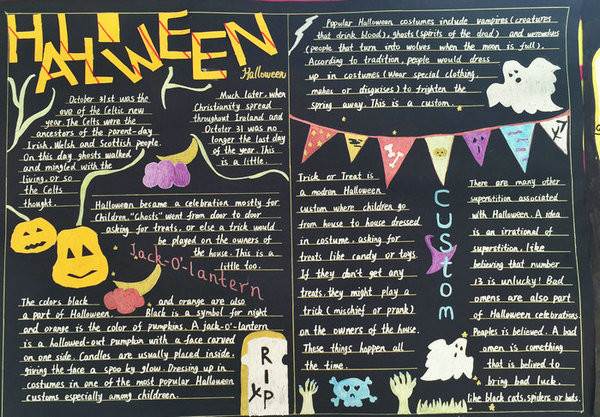 HALLOWEEN
Halloween
October 31st was the
eve of the Celtic new
year. The Celts were the
ancestors of the parent-day
Irish, Welsh and Scottish people.
On this day ghosts walked
and mingled with the
living, or so
the Celts
thought.
Much later, when
Christianity spread
throughout Ireland and
October 31 was no
longer the last day
of the year. This
is a little.
Halloween became a celebration mostly for
Children. "Ghosts" went from door to door
asking for treats, or else a trick would
be played on the owners of
the house. This is a
little too.
Jack-O'-lantern
The colors black and orange are also
a part of Halloween. Black is a symbol for night
and orange is the color of pumpkins. A jack-o'-lantern
is a hallowed-out pumpkin with a face carved
on one side. Candles are usually placed inside,
giving the face a spoo by glow. Dressing up in
costumes in one of the most popular Halloween
customs especially among childrem.
RIP
Popular Halloween costumes include vampires (creatures
that drink blood), ghosts (spirits of the dead) and werewolves
(people that turn into wolves when the moon is full).
According to tradition, people would dress
up in costumes (wear special clothing,
makes or disguises) to frighten the
spring away. This is a custom.
Trick or Treat is
a modran Halloween
custom where children go
from house to house dressed
in costume, asking for
treats like candy or toys.
If they don't get any
treats, they might play a
trick (mischief or prank)
on the owners of the house.
These things happen all
the time.
Custom
There are many other
superstition associated
with Halloween. A idea
is an irrational of
superstition, like
believing that number
13 is unlucky! Bad
omens are also part
of Halloween celebrations.
Peoples is believed. A bad
omen is something
that is belived to
bring bad luck,
like black cats, spiders or bats.